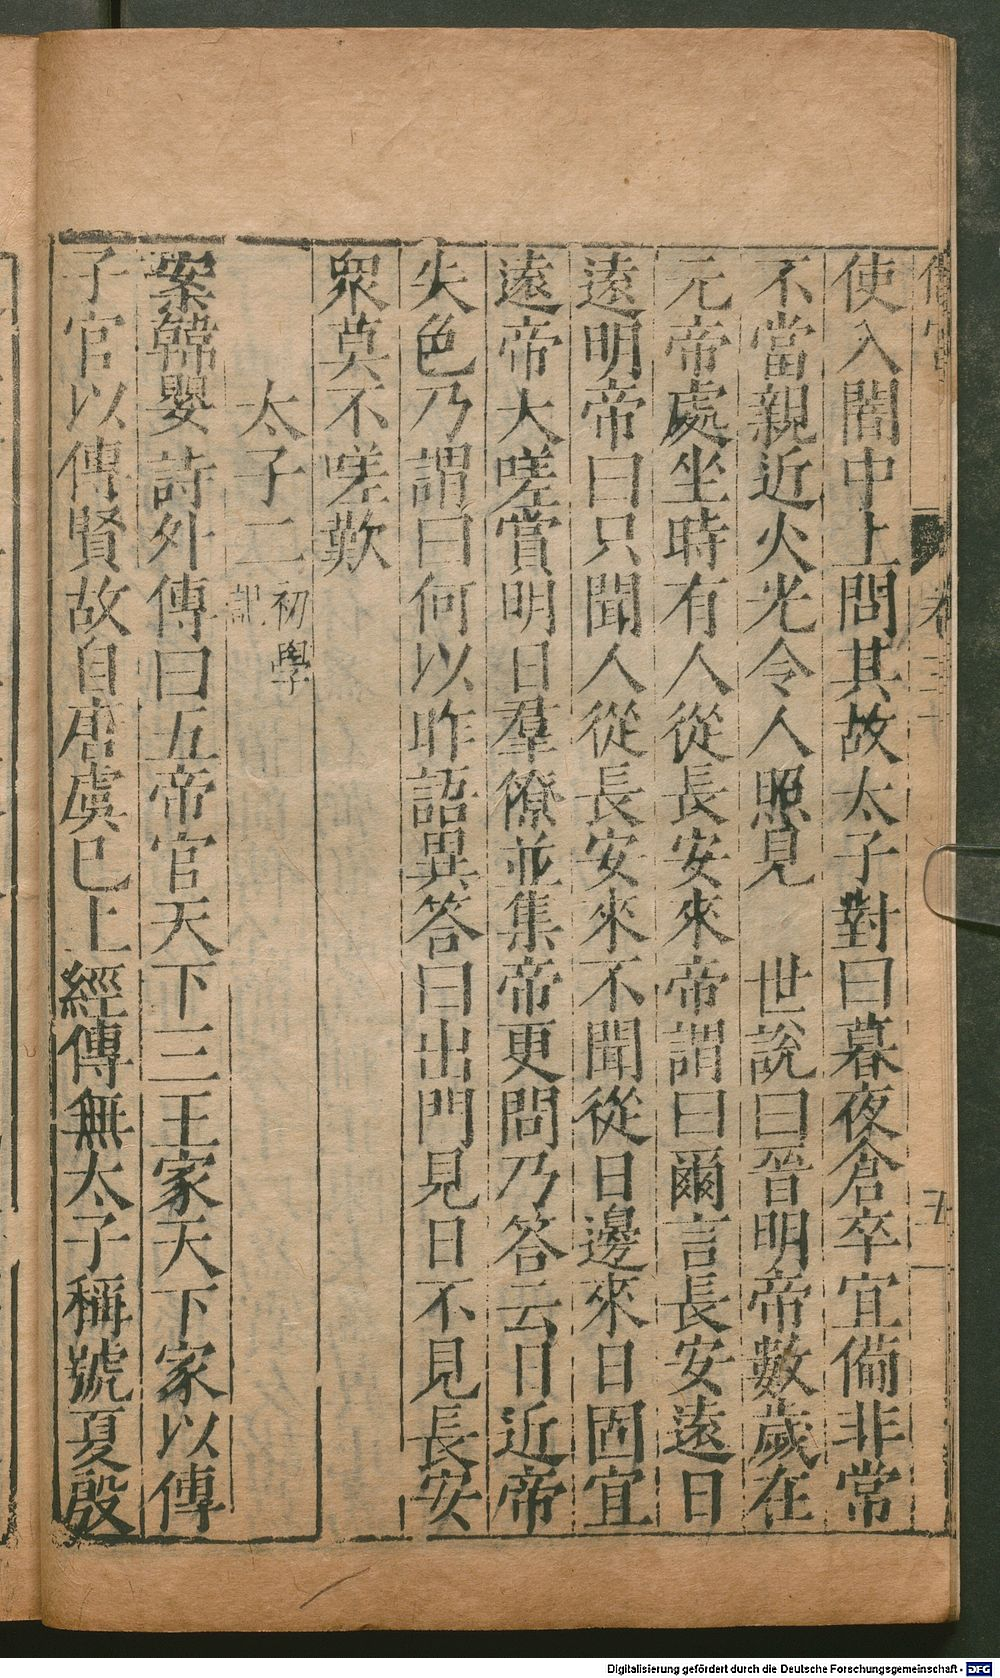 使入闇中上問其故太子對曰暮夜倉卒宜備非常
不當親近火光令人照見　世說曰晉明帝數歲在
元帝處坐時有人從長安來帝謂曰爾言長安遠日
遠明帝曰只聞人從長安來不聞從日邊來日固宜
遠帝大嗟賞明日羣僚並集帝更問乃答云日近帝
失色乃謂曰何以昨語異答曰出門見日不見長安
衆莫不嗟歎
太子二初學記
案韓嬰詩外傳曰五帝官天下三王家天下家以傳
子官以傳賢故自唐虞已上經傳無太子稱號夏殷
Digitalisierung gefördert durch die Deutsche Forschungsgemeinschaft - DFG